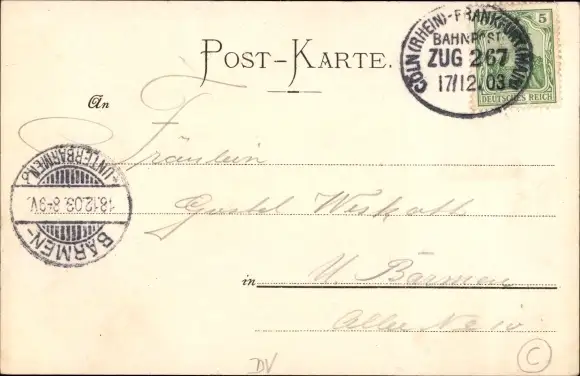 POST-KARTE.
CÖLN (RHEIN)-FRANKFURT (MAIN)
BAHNPOST
ZUG 267
17/12.03
5
DEUTSCHES REICH
An
Fräulein
Gustel
BARMEN-
18.12.03. 8-9V.
UNTERBARMEN.
in U. Barmen
Allee No 10
DV
C